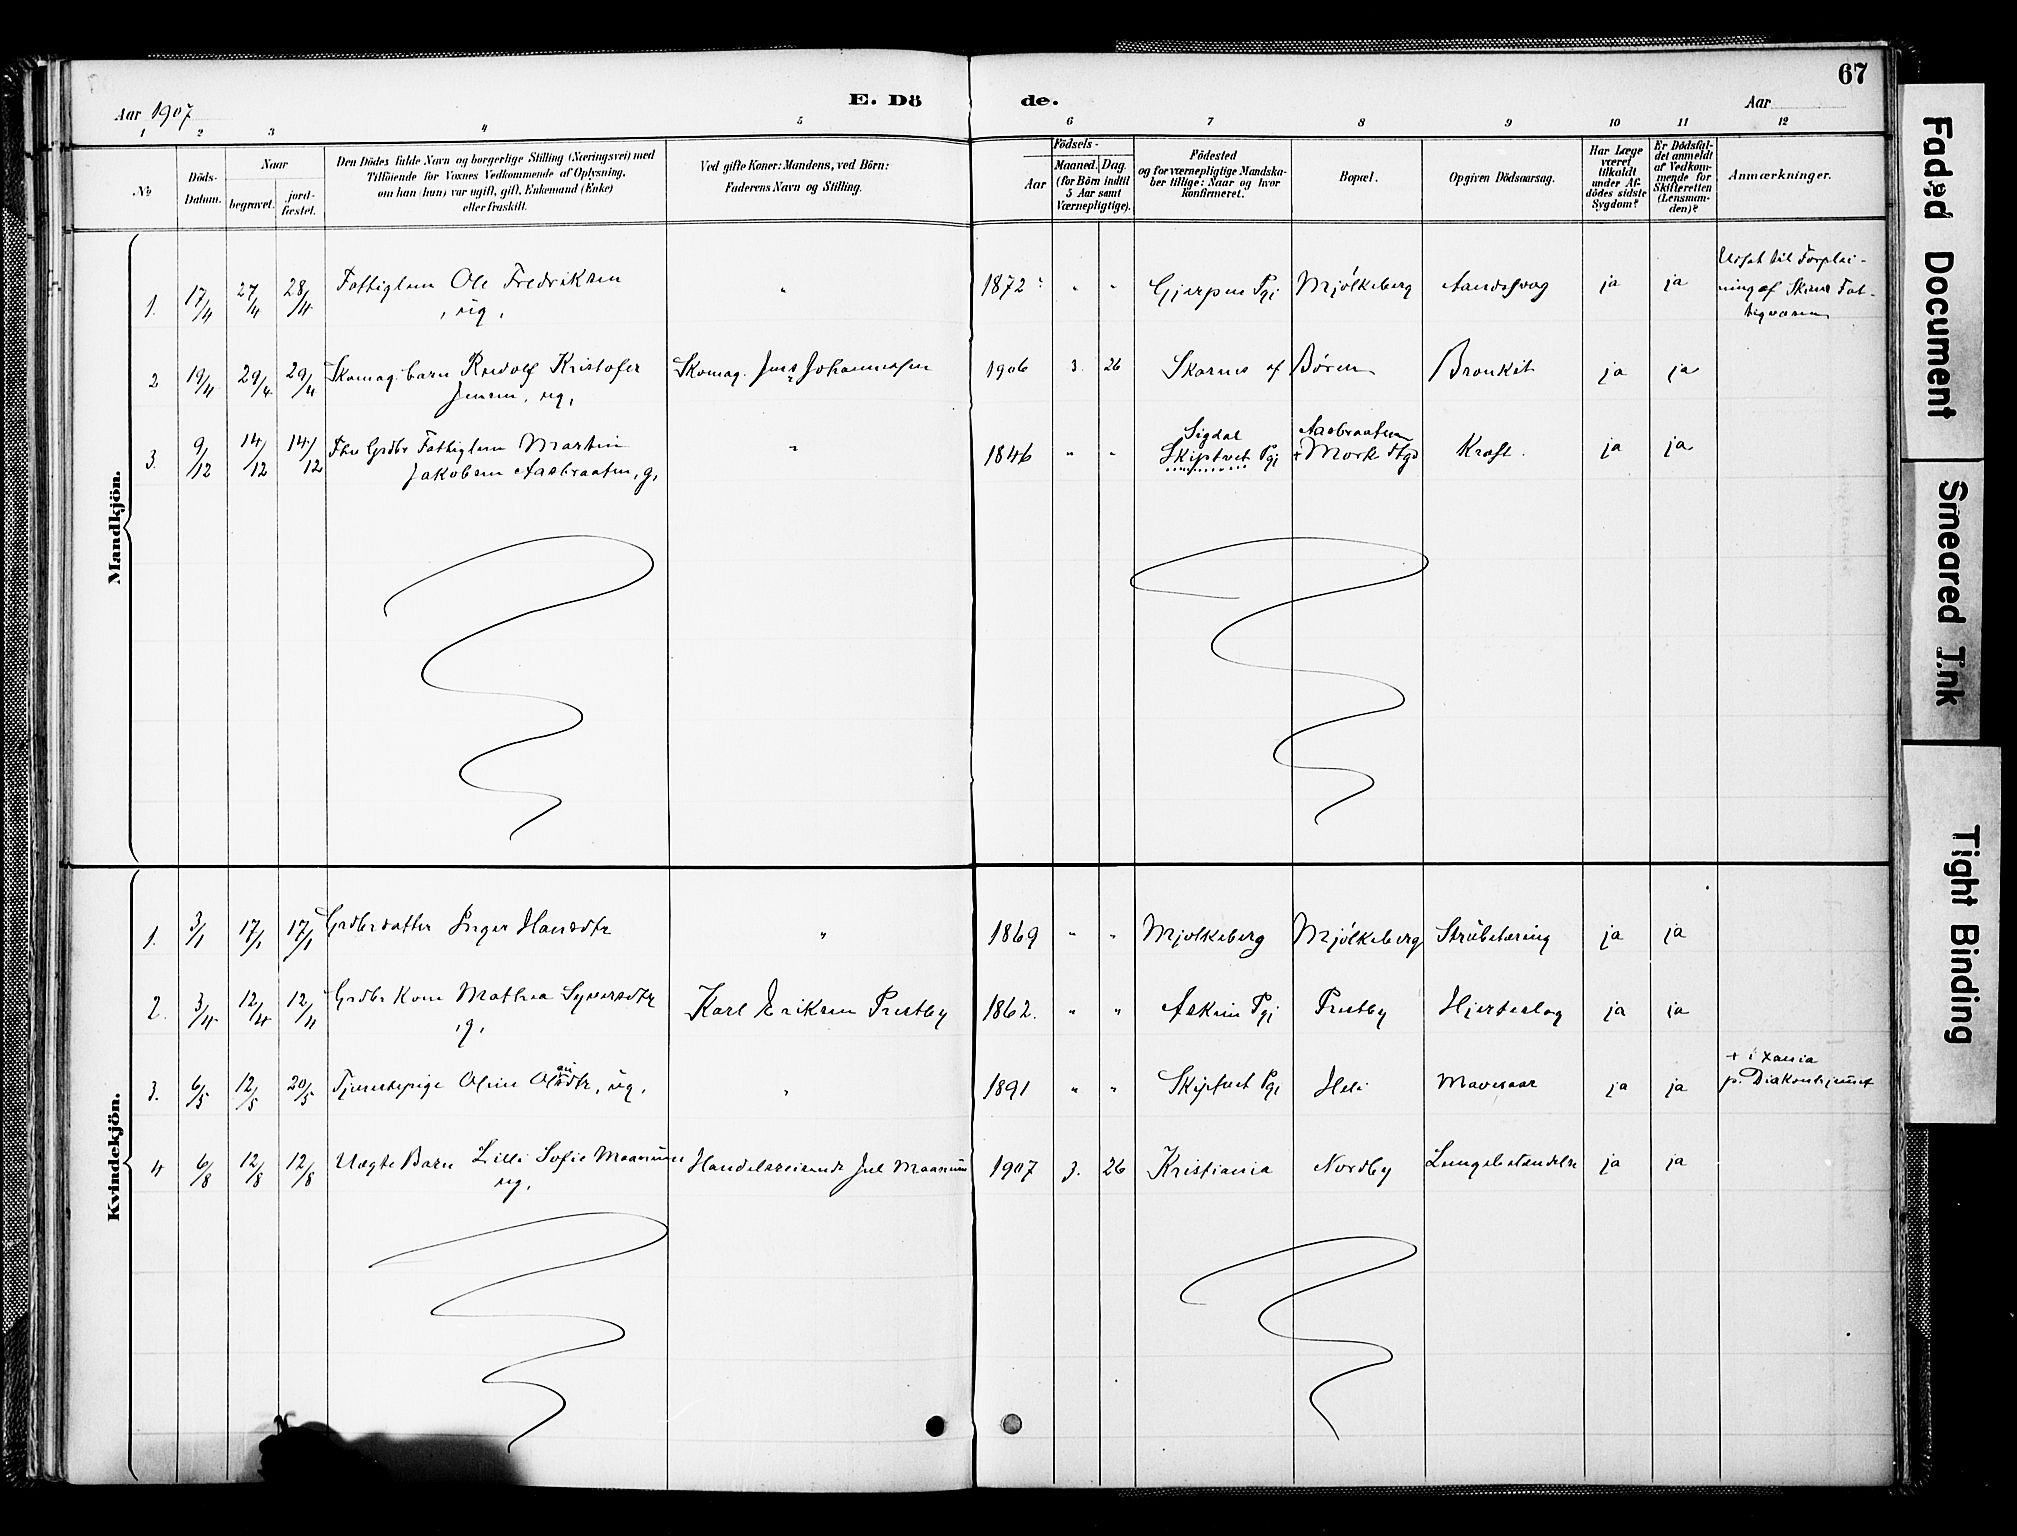 67
Aar 1907
E. Dö
de.
Aar
1 2 3 4 5 6 7 8 9 10 11 12
No
Döds-
Datum.
Naar
begravet.
jord-
fæstet.
Den Dödes fulde Navn og borgerlige Stilling (Næringsvei) med
Tilföiende for Voxnes Vedkommende af Oplysning,
om han (hun) var ugift, gift, Enkemand (Enke)
eller fraskilt.
Ved gifte Koner: Mandens, ved Börn:
Faderens Navn og Stilling.
Födsels-
Aar
Maaned. Dag.
(for Börn indtil
5 Aar samt
Værnepligtige).
Födested
og for værnepligtige Mandska-
ber tillige: Naar og hvor
konfirmeret.
Bopæl.
Opgiven Dödsaarsag.
Har Læge
været
tilkaldt
under Af-
dödes sidste
Sygdom?
Er Dödsfal-
det anmeldt
af Vedkom-
mende for
Skifteretten
(Lensman-
den)?
Anmærkninger.
Mandkjön.
1. 17/4 27/4 28/4 Fattiglem Ole Fredriksen " 1872 " " Gjerpen Pgj Mjölkeberg Aandssvag ja ja
, ug,
ning af Skiens Fat-
tigvæsen
2 19/4 29/4 29/4 Skomag. barn Rudolf Kristofer Skomag. Jens Johannessen 1906 3. 26 Børen Bronkit ja ja
Jensen, ug,
3. 9/12 14/12 14/12 Fhv Grdbr Fattiglem Martin " 1846 " " Sigdal
Skiptvet Pgj Aasbraaten
Mork Kræft. ja ja
Jakobsen Aasbraaten, g,
Kvindekjön.
1. 3/1 17/1 17/1 Grdbrdatter Inger Hansdtr " 1869 " " Mjölkeberg Mjölkeberg Strubetæring ja ja
2. 3/4 12/4 12/4 Grdbr Kone Mathea Syversdtr Karl Eriksen Prestby 1862. " " Askim Pgj Prestby Hjerteslag ja ja
,g,
3. 6/5 12/5 20/5 Tjenestepige Oline, ug, " 1891 " " Skiptvet Pgj Heli Mavesaar ja ja
+ i Xania
p. Diakonhjemmet
4 6/8 12/8 12/8 Uægte Barn Lilli Sofie Maanum Handelsreisende Jul Maanum 1907 3. 26 Kristiania Nordby Lungebetændelse ja ja
ug,
Faded Document
Smeared Ink
Tight Binding